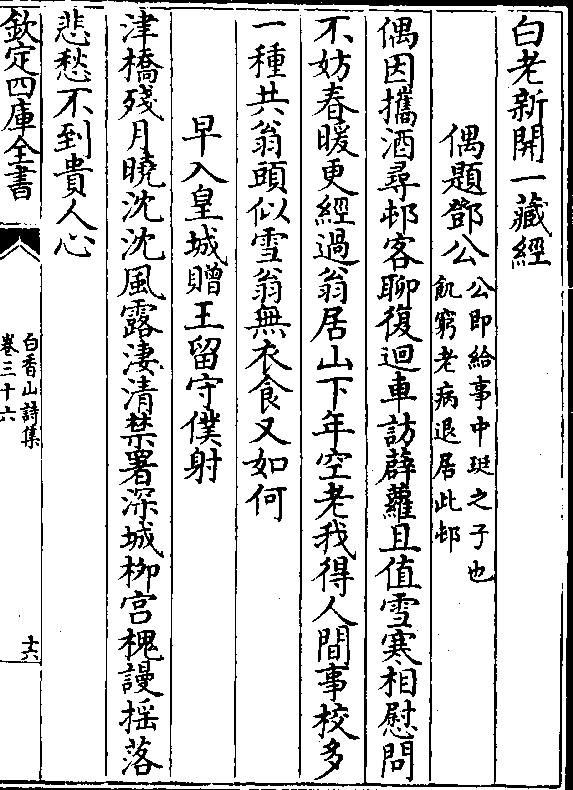 白老新開一藏經
偶題鄧公
公即給事中珽之子也
飢窮老病退居此邨
偶因攜酒尋邨客聊復迴車訪薜蘿且值雪寒相慰問
不妨春暖更經過翁居山下年空老我得人間事校多
一種共翁頭似雪翁無衣食又如何
早入皇城贈王留守僕射
津橋殘月曉沈沈風露淒清禁署深城栁宮槐謾揺落
悲愁不到貴人心
欽定四庫全書
白香山詩集
卷三十六
十六